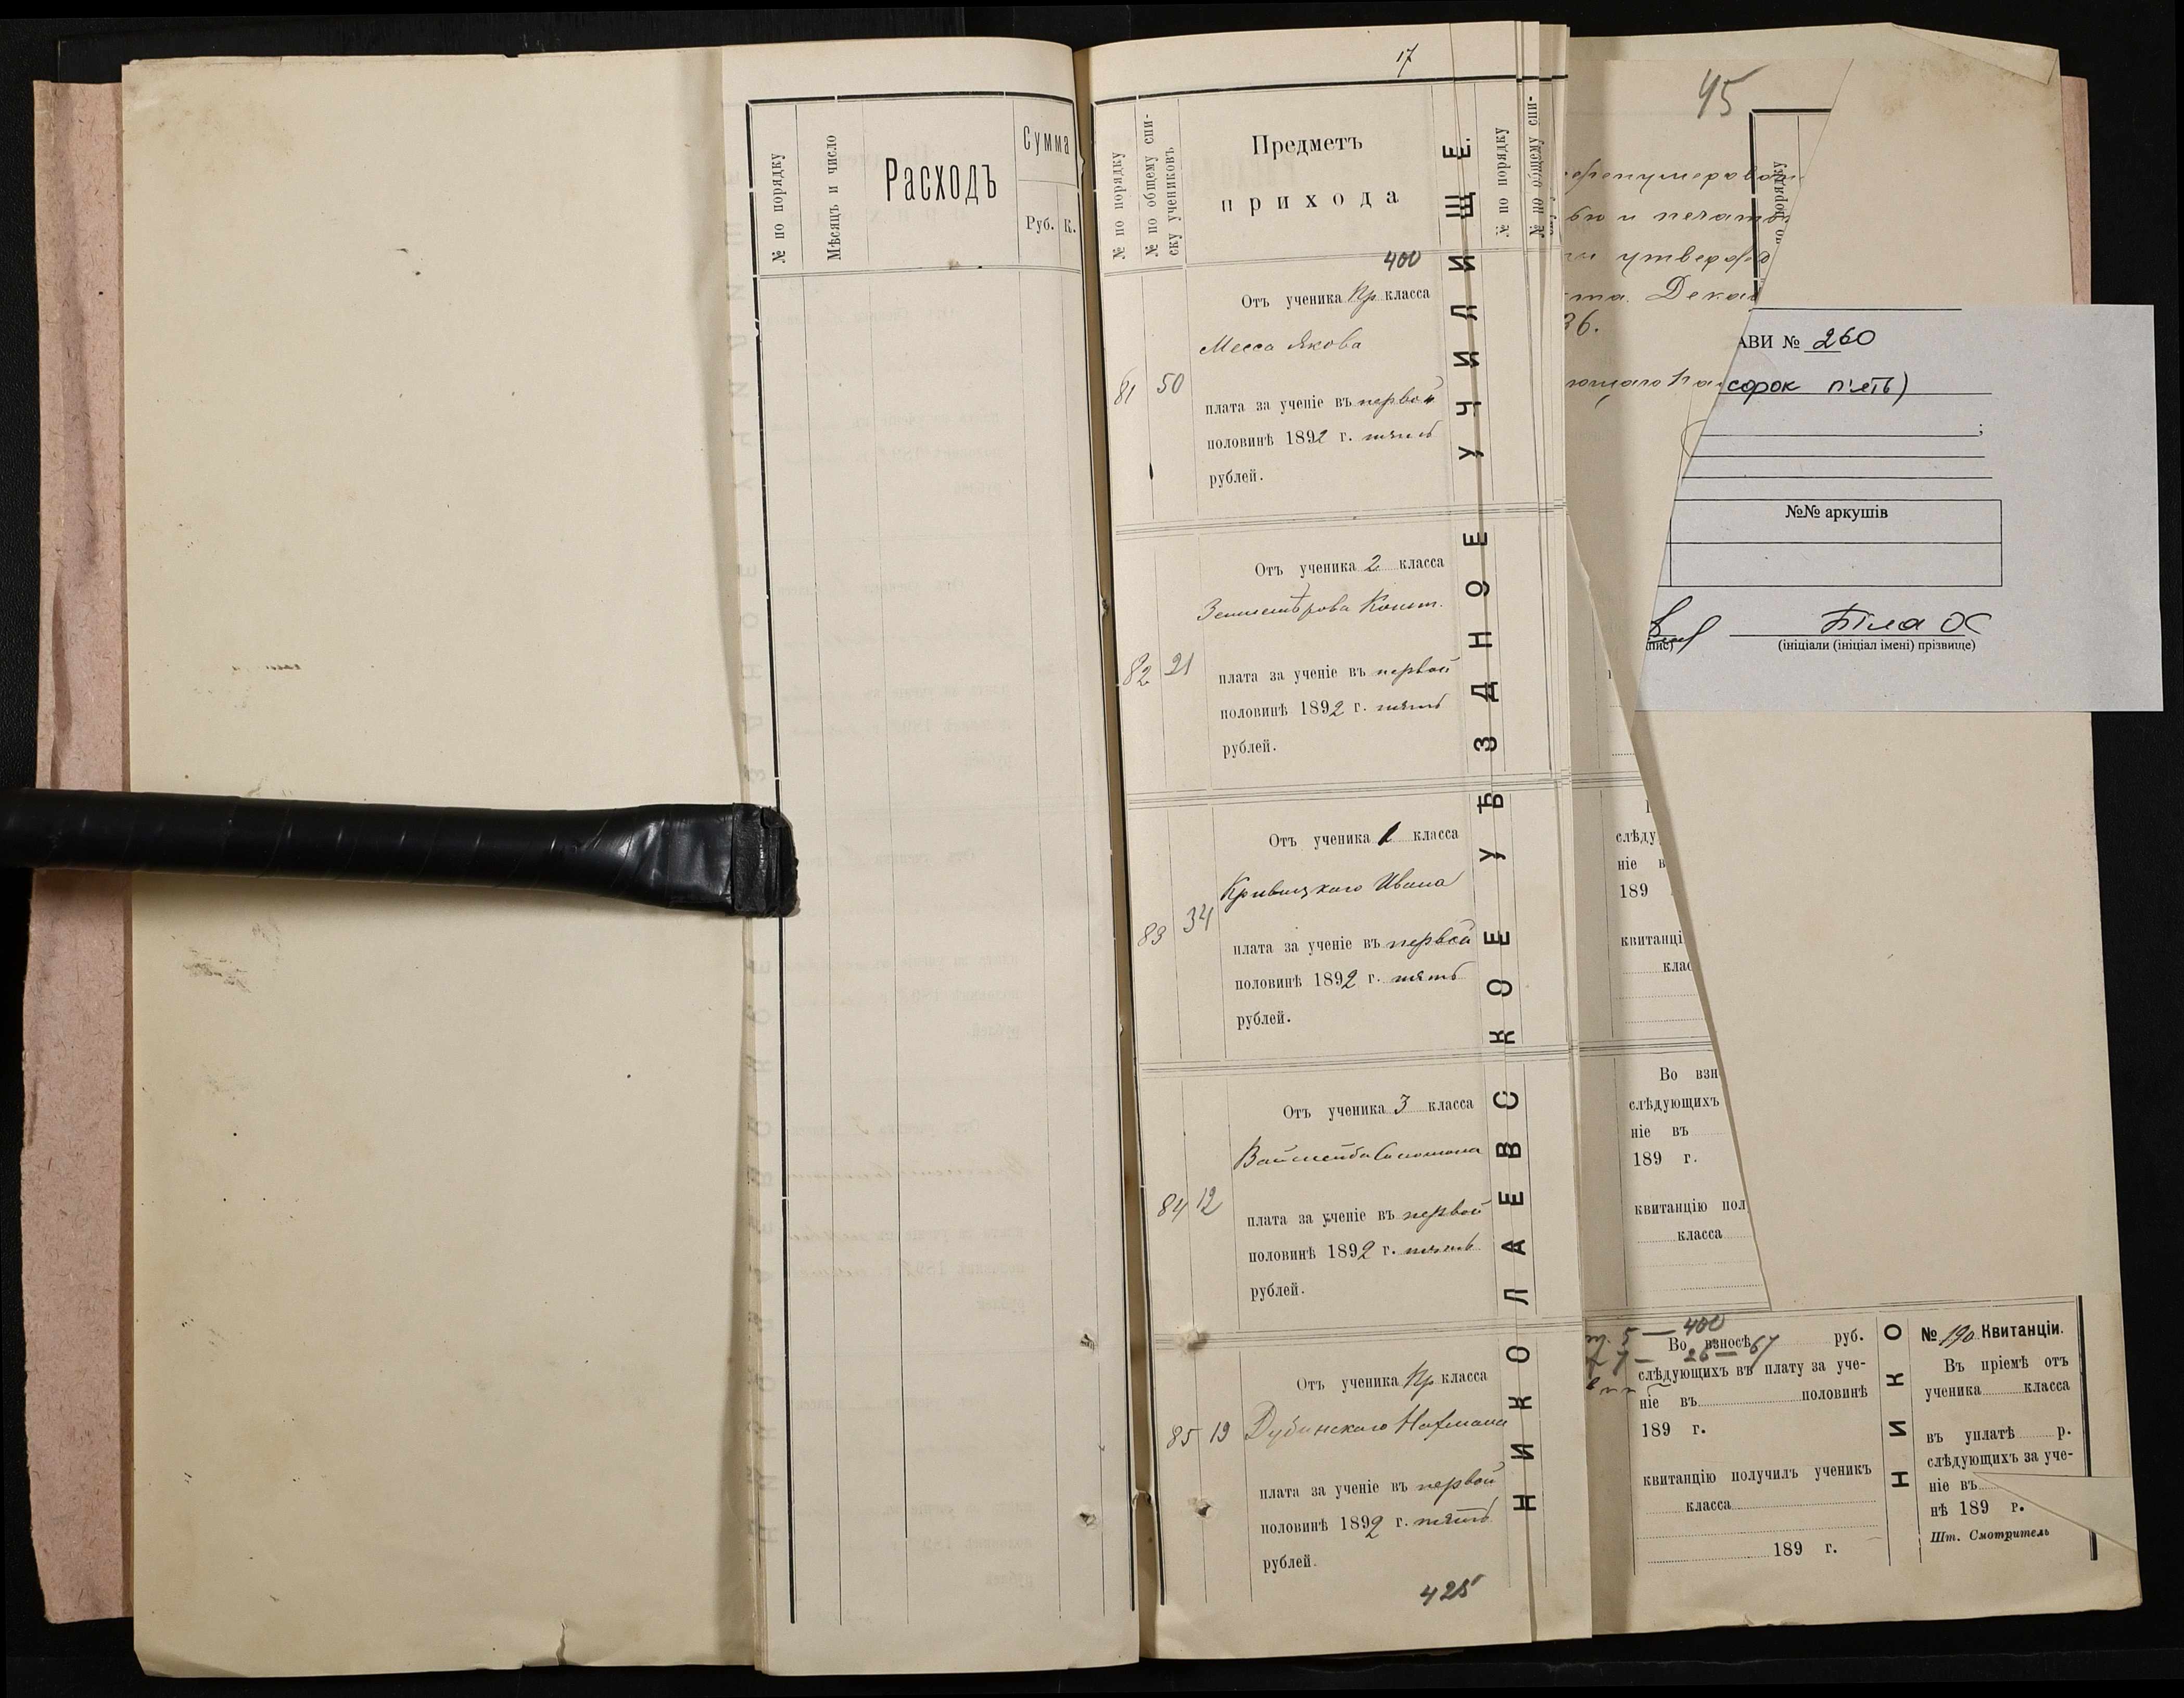 № по порядку
Мѣсяцъ и число
Расходъ
Сумма
Руб. К.
17
№ по порядку
№ по общему спи-
ску учениковъ
Предметъ
прихода
400
Отъ ученика Пр класса
Месса Якова
81 50
плата за ученіе въ первой
половинѣ 1892 г. пять
рублей.
Отъ ученика 2 класса
82 21
плата за ученіе въ первой
половинѣ 1892 г. пять
рублей.
Отъ ученика 1 класса
Кривицкаго Ивана
83 34
плата за ученіе въ первой
половинѣ 1892 г. пять
рублей.
Отъ ученика 3 класса
84 12
плата за ученіе въ первой
половинѣ 1892 г. пять
рублей.
Отъ ученика Пр класса
Дубинскаго
85 19
плата за ученіе въ первой
половинѣ 1892 г. пять
рублей.
425
НИКОЛАЕВСКОЕ УѢЗДНОЕ УЧИЛИЩЕ.
№ по порядку
№ по общему спи-
45
по порядку
и печать
Дека
36.
АВИ № 260
сорок п'ять)
;
№№ аркушів
Біла О
(ініціали (ініціал імені) прізвище)
слѣду
ніе в
189
квитанці
клас
Во взн
слѣдующихъ
ніе въ
189 г.
квитанцію пол
класса
5 — 400
Во взносѣ руб.
26 — 67
слѣдующихъ въ плату за уче-
ніе въ половинѣ
189 г.
квитанцію получилъ ученикъ
класса
189 г.
НИКО
№ 190 Квитанціи.
Въ пріемѣ отъ
ученика класса
въ уплатѣ р.
слѣдующихъ за уче-
ніе въ
нѣ 189 г.
Шт. Смотритель